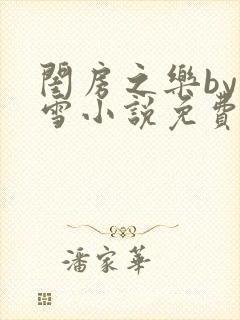 閨房之樂by
雪小說免費
潘家華